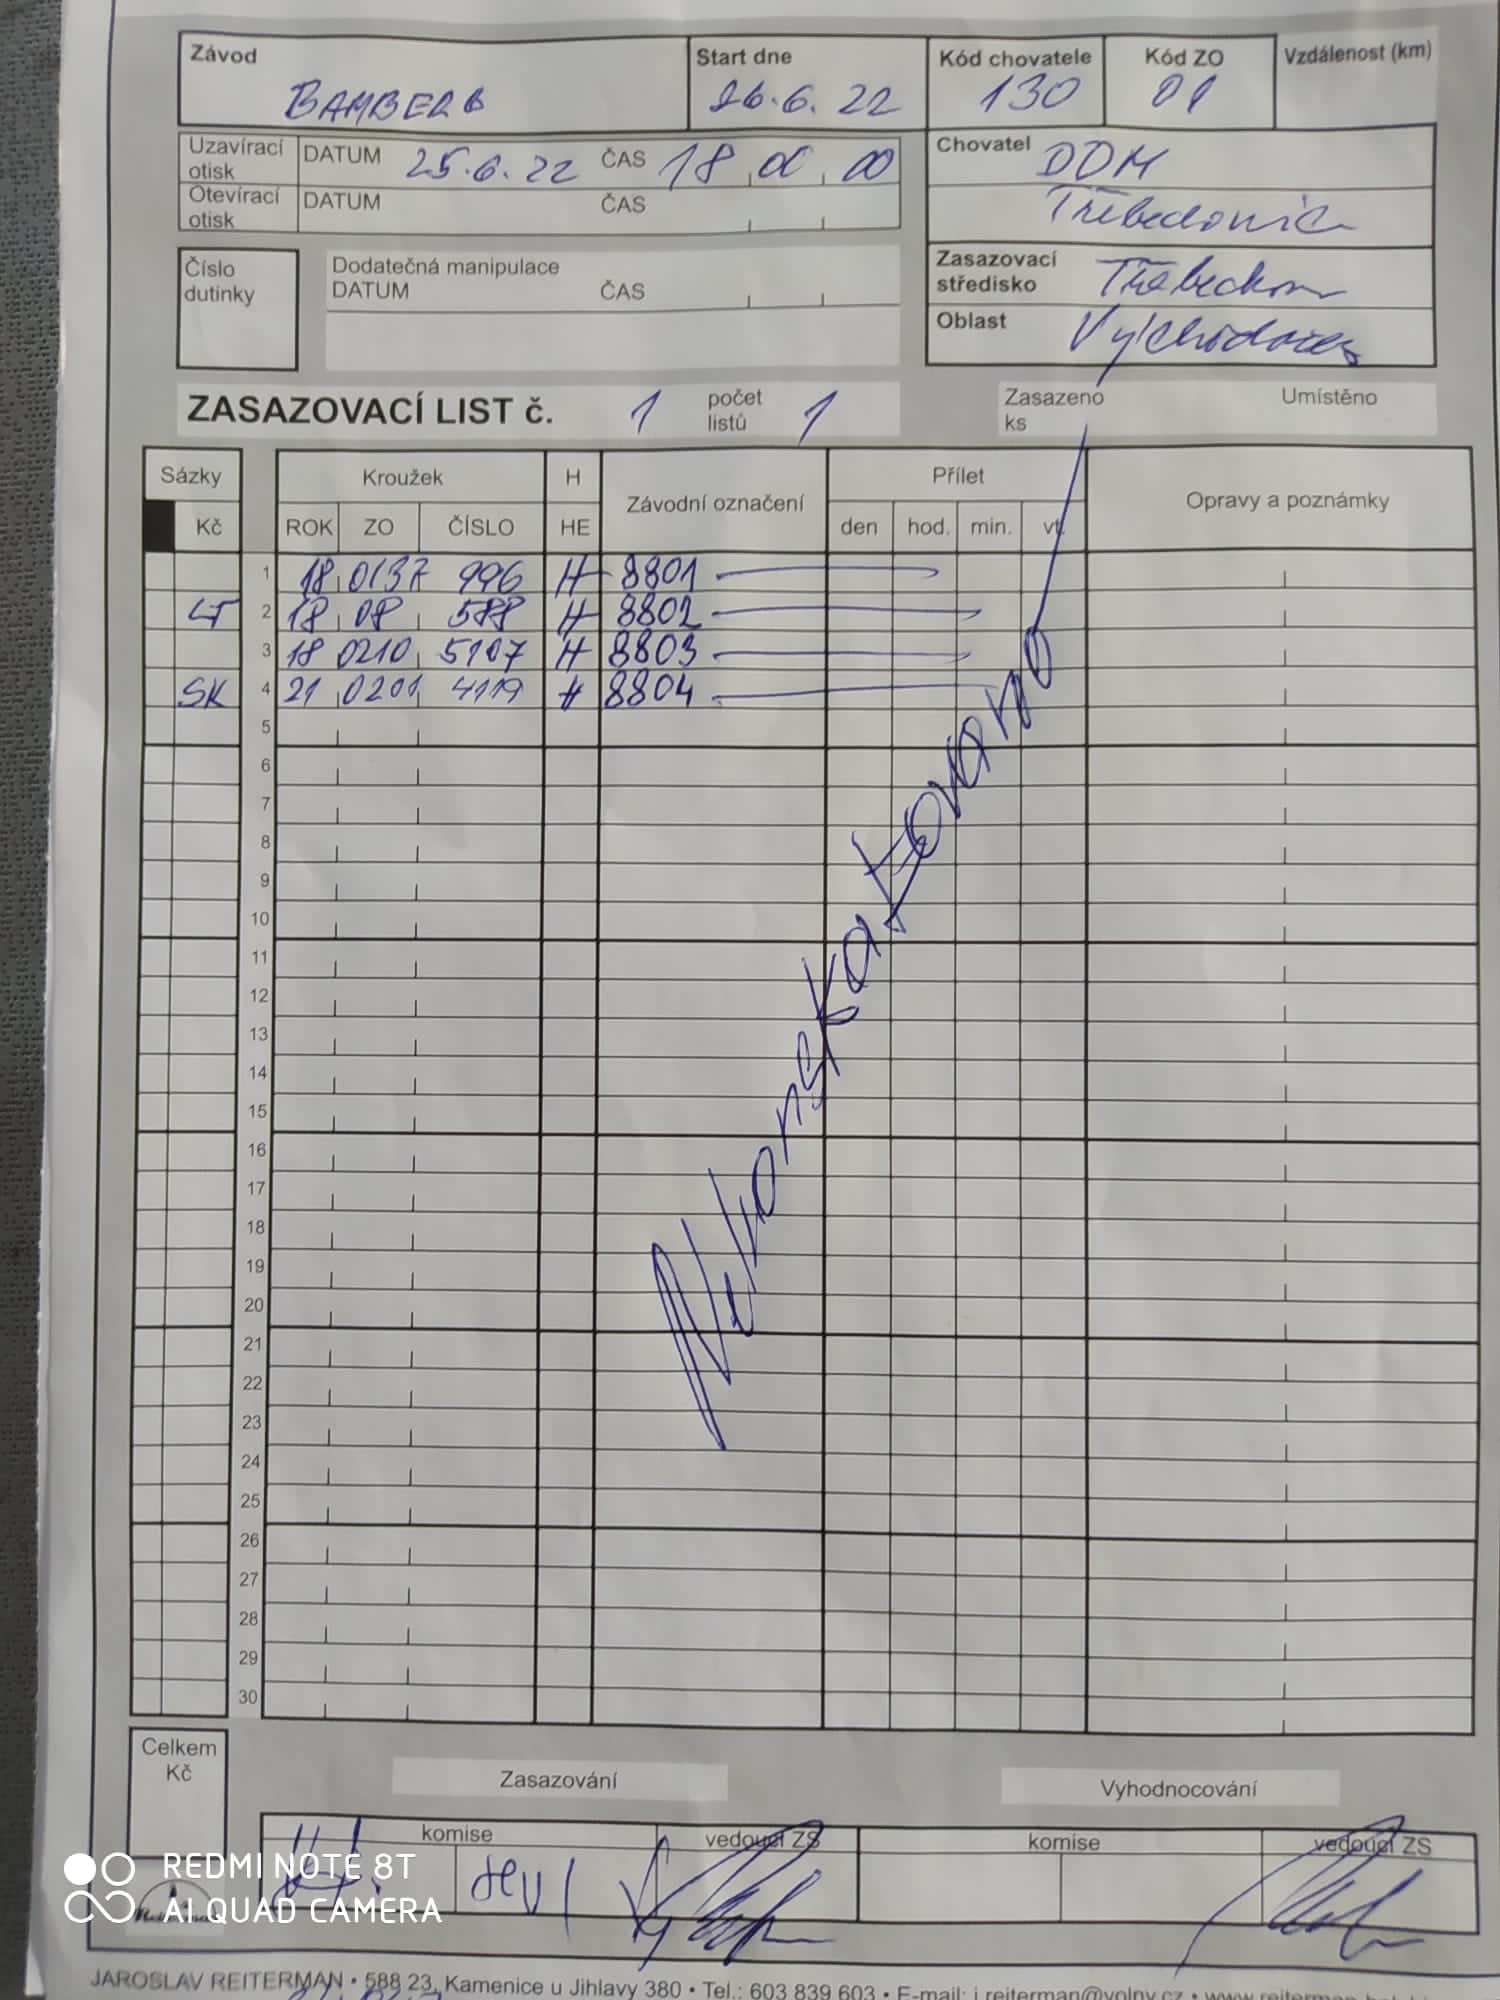 Závod Start dne Kód chovatele Kód ZO Vzdálenost (km)
BAMBERG 26.6.22 130 01
Uzavírací otisk DATUM 25.6.22 ČAS 18 00 00
Otevírací otisk DATUM ČAS
Chovatel DDM
Číslo dutinky
Dodatečná manipulace
DATUM ČAS
Zasazovací středisko
Oblast
ZASAZOVACÍ LIST č. 1 počet listů 1
Zasazeno ks Umístěno
Sázky Kroužek H Závodní označení Přílet Opravy a poznámky
Kč ROK ZO ČÍSLO HE den hod. min. vt.
1 18 0137 996 H 8801
LT 2 18 08 588 H 8802
3 18 0210 5107 H 8803
SK 4 21 0201 4119 H 8804
5
6
7
8
9
10
11
12
13
14
15
16
17
18
19
20
21
22
23
24
25
26
27
28
29
30
Nekonskatovano
Celkem Kč
Zasazování Vyhodnocování
komise vedoucí ZS komise vedoucí ZS
REDMI NOTE 8T
AI QUAD CAMERA
JAROSLAV REITERMAN • 588 23, Kamenice u Jihlavy 380 • Tel.: 603 839 603 • E-mail: j.reiterman@volny.cz •